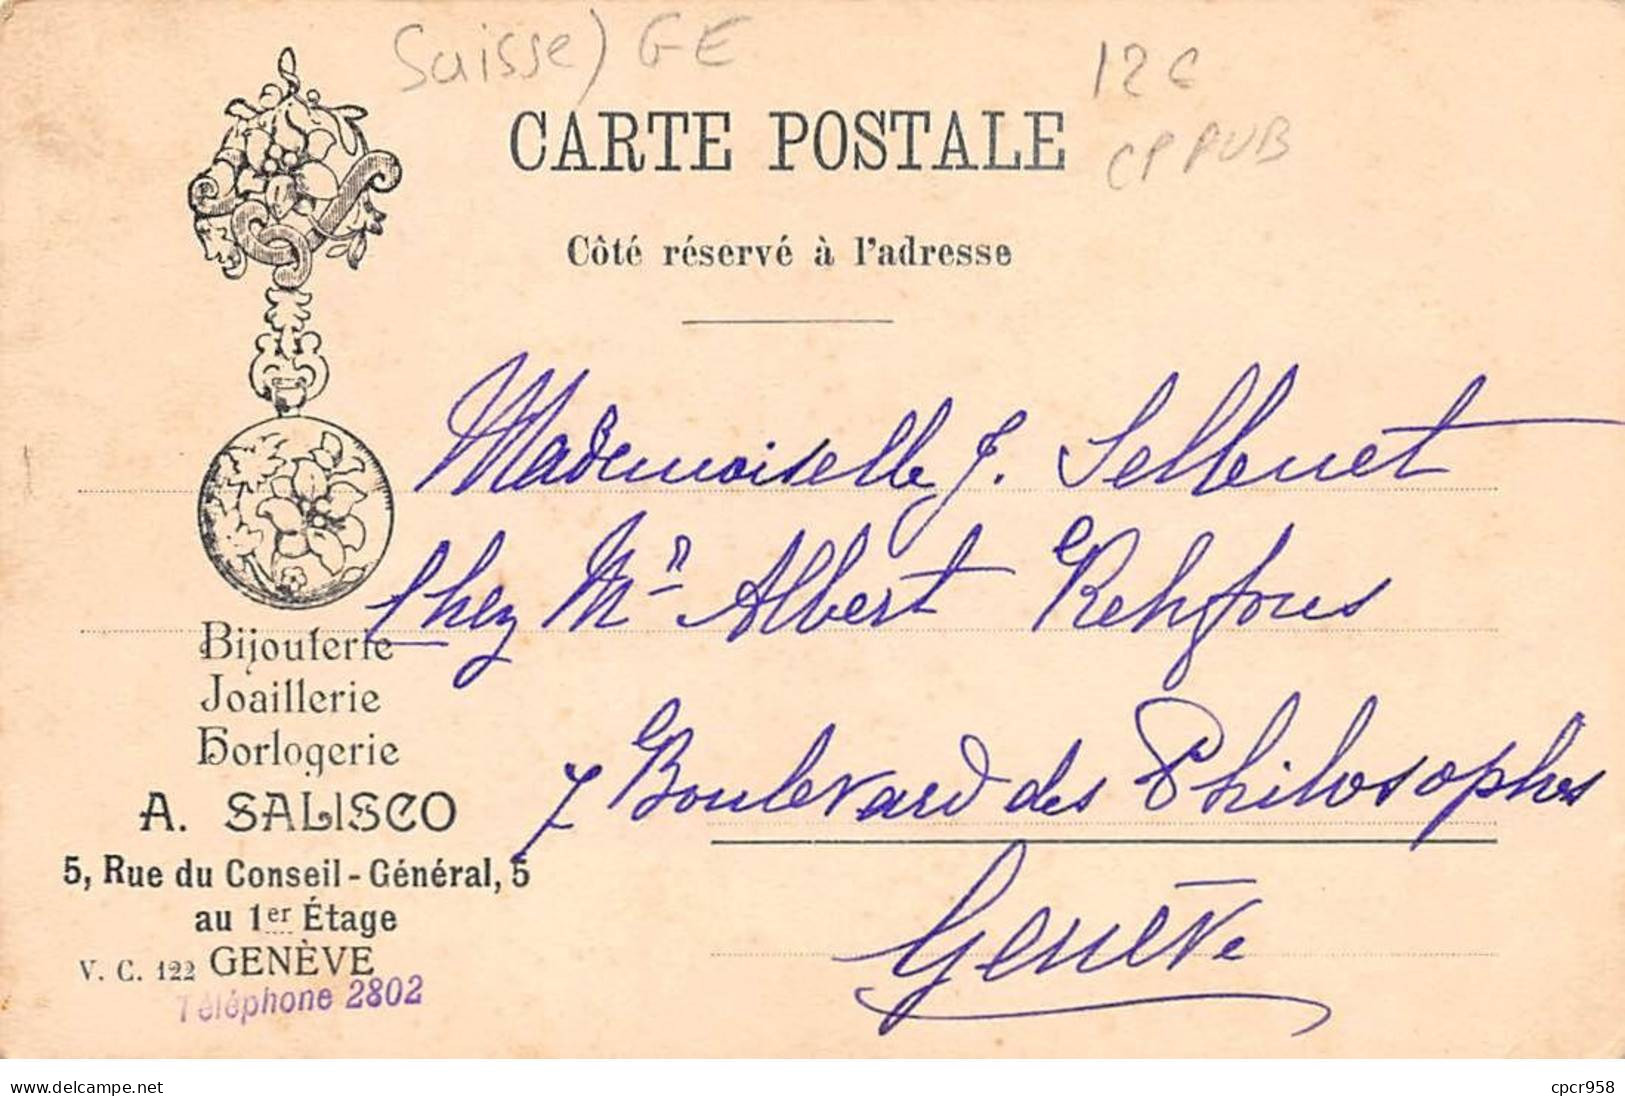 Suisse) GE
12 €
CP PUB
CARTE POSTALE
Côté réservé à l'adresse
Mademoiselle J. Sellenet
Chez Mr Albert Rehfous
7 Boulevard des Philosophes
Genève
Bijouterie
Joaillerie
Horlogerie
A. SALISCO
5, Rue du Conseil-Général, 5
au 1er Étage
V. C. 122 GENÈVE
Téléphone 2802
www.delcampe.net
cpcr958